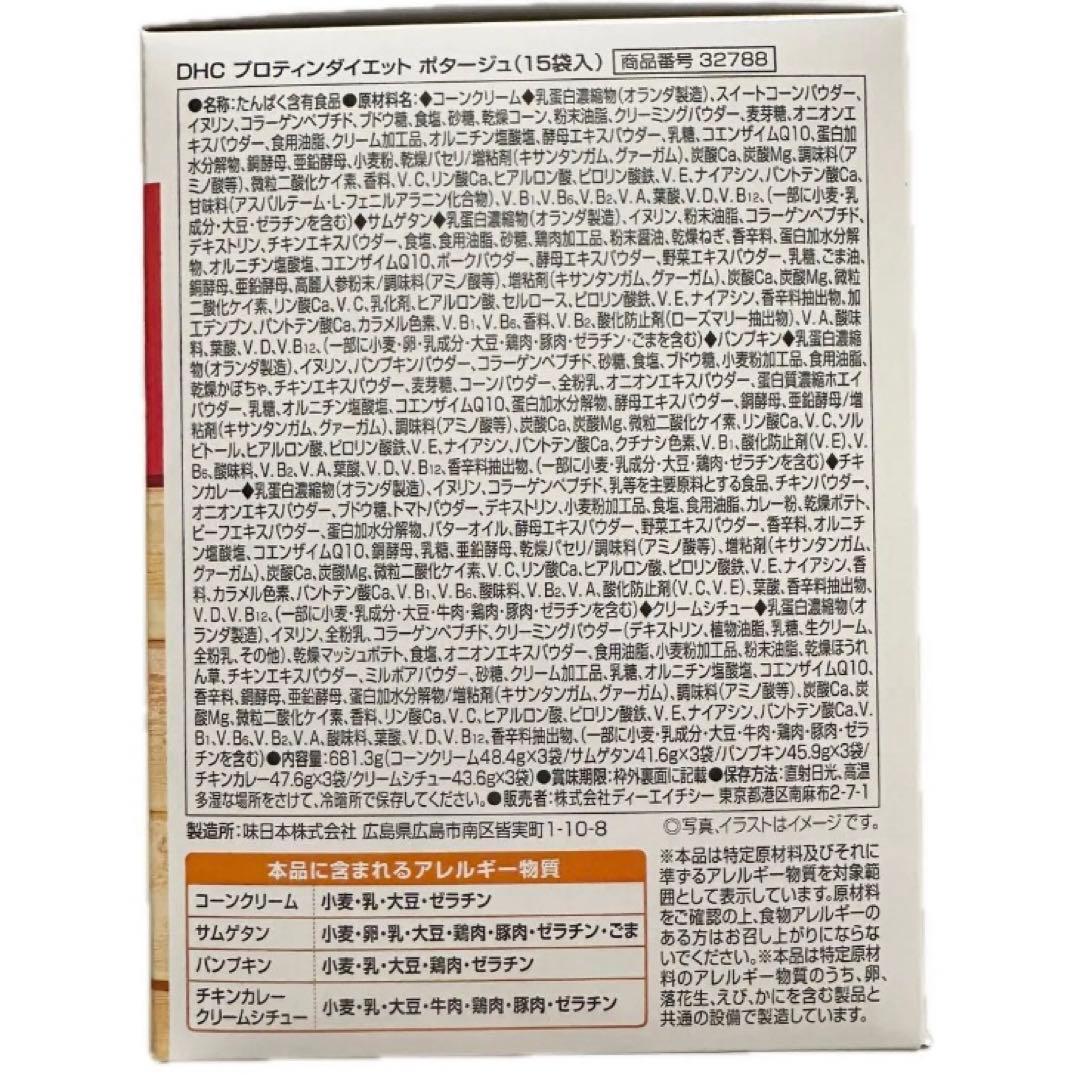 DHC プロティンダイエット ポタージュ(15袋入) 商品番号 32788
●名称:たんぱく含有食品●原材料名:◆コーンクリーム◆乳蛋白濃縮物(オランダ製造)、スイートコーンパウダー、
イヌリン、コラーゲンペプチド、ブドウ糖、食塩、砂糖、乾燥コーン、粉末油脂、クリーミングパウダー、麦芽糖、オニオンエ
キスパウダー、食用油脂、クリーム加工品、オルニチン塩酸塩、酵母エキスパウダー、乳糖、コエンザイムQ10、蛋白加
水分解物、銅酵母、亜鉛酵母、小麦粉、乾燥パセリ/増粘剤(キサンタンガム、グァーガム)、炭酸Ca、炭酸Mg、調味料(ア
ミノ酸等)、微粒二酸化ケイ素、香料、V.C、リン酸Ca、ヒアルロン酸、ピロリン酸鉄、V.E、ナイアシン、パントテン酸Ca、
甘味料(アスパルテーム・L-フェニルアラニン化合物)、V.B1、V.B6、V.B2、V.A、葉酸、V.D、V.B12、(一部に小麦・乳
成分・大豆・ゼラチンを含む)◆サムゲタン◆乳蛋白濃縮物(オランダ製造)、イヌリン、粉末油脂、コラーゲンペプチド、
デキストリン、チキンエキスパウダー、食塩、食用油脂、砂糖、鶏肉加工品、粉末醤油、乾燥ねぎ、香辛料、蛋白加水分解
物、オルニチン塩酸塩、コエンザイムQ10、ポークパウダー、酵母エキスパウダー、野菜エキスパウダー、乳糖、ごま油、
銅酵母、亜鉛酵母、高麗人参粉末/調味料(アミノ酸等)、増粘剤(キサンタンガム、グァーガム)、炭酸Ca、炭酸Mg、微粒
二酸化ケイ素、リン酸Ca、V.C、乳化剤、ヒアルロン酸、セルロース、ピロリン酸鉄、V.E、ナイアシン、香辛料抽出物、加
工デンプン、パントテン酸Ca、カラメル色素、V.B1、V.B6、香料、V.B2、酸化防止剤(ローズマリー抽出物)、V.A、酸味
料、葉酸、V.D、V.B12、(一部に小麦・卵・乳成分・大豆・鶏肉・豚肉・ゼラチン・ごまを含む)◆パンプキン◆乳蛋白濃縮
物(オランダ製造)、イヌリン、パンプキンパウダー、コラーゲンペプチド、砂糖、食塩、ブドウ糖、小麦粉加工品、食用油脂、
乾燥かぼちゃ、チキンエキスパウダー、麦芽糖、コーンパウダー、全粉乳、オニオンエキスパウダー、蛋白質濃縮ホエイ
パウダー、乳糖、オルニチン塩酸塩、コエンザイムQ10、蛋白加水分解物、酵母エキスパウダー、銅酵母、亜鉛酵母/増
粘剤(キサンタンガム、グァーガム)、調味料(アミノ酸等)、炭酸Ca、炭酸Mg、微粒二酸化ケイ素、リン酸Ca、V.C、ソル
ビトール、ヒアルロン酸、ピロリン酸鉄、V.E、ナイアシン、パントテン酸Ca、クチナシ色素、V.B1、酸化防止剤(V.E)、V.
B6、酸味料、V.B2、V.A、葉酸、V.D、V.B12、香辛料抽出物、(一部に小麦・乳成分・大豆・鶏肉・ゼラチンを含む)◆チキ
ンカレー◆乳蛋白濃縮物(オランダ製造)、イヌリン、コラーゲンペプチド、乳等を主要原料とする食品、チキンパウダー、
オニオンエキスパウダー、ブドウ糖、トマトパウダー、デキストリン、小麦粉加工品、食塩、食用油脂、カレー粉、乾燥ポテト、
ビーフエキスパウダー、蛋白加水分解物、バターオイル、酵母エキスパウダー、野菜エキスパウダー、香辛料、オルニチ
ン塩酸塩、コエンザイムQ10、銅酵母、乳糖、亜鉛酵母、乾燥パセリ/調味料(アミノ酸等)、増粘剤(キサンタンガム、
グァーガム)、炭酸Ca、炭酸Mg、微粒二酸化ケイ素、V.C、リン酸Ca、ヒアルロン酸、ピロリン酸鉄、V.E、ナイアシン、香
料、カラメル色素、パントテン酸Ca、V.B1、V.B6、酸味料、V.B2、V.A、酸化防止剤(V.C、V.E)、葉酸、香辛料抽出物、
V.D、V.B12、(一部に小麦・乳成分・大豆・牛肉・鶏肉・豚肉・ゼラチンを含む)◆クリームシチュー◆乳蛋白濃縮物(オ
ランダ製造)、イヌリン、全粉乳、コラーゲンペプチド、クリーミングパウダー(デキストリン、植物油脂、乳糖、生クリーム、
全粉乳、その他)、乾燥マッシュポテト、食塩、オニオンエキスパウダー、食用油脂、小麦粉加工品、粉末油脂、乾燥ほうれ
ん草、チキンエキスパウダー、ミルポアパウダー、砂糖、クリーム加工品、乳糖、オルニチン塩酸塩、コエンザイムQ10、
香辛料、銅酵母、亜鉛酵母、蛋白加水分解物/増粘剤(キサンタンガム、グァーガム)、調味料(アミノ酸等)、炭酸Ca、炭
酸Mg、微粒二酸化ケイ素、香料、リン酸Ca、V.C、ヒアルロン酸、ピロリン酸鉄、V.E、ナイアシン、パントテン酸Ca、V.
B1、V.B6、V.B2、V.A、酸味料、葉酸、V.D、V.B12、香辛料抽出物、(一部に小麦・乳成分・大豆・牛肉・鶏肉・豚肉・ゼラ
チンを含む)●内容量:681.3g(コーンクリーム48.4g×3袋/サムゲタン41.6g×3袋/パンプキン45.9g×3袋/
チキンカレー47.6g×3袋/クリームシチュー43.6g×3袋)●賞味期限:枠外裏面に記載●保存方法:直射日光、高温
多湿な場所をさけて、冷暗所で保存してください。●販売者:株式会社ディーエイチシー 東京都港区南麻布2-7-1
製造所:味日本株式会社 広島県広島市南区皆実町1-10-8
◎写真、イラストはイメージです。
本品に含まれるアレルギー物質
コーンクリーム 小麦・乳・大豆・ゼラチン
サムゲタン 小麦・卵・乳・大豆・鶏肉・豚肉・ゼラチン・ごま
パンプキン 小麦・乳・大豆・鶏肉・ゼラチン
チキンカレー
クリームシチュー 小麦・乳・大豆・牛肉・鶏肉・豚肉・ゼラチン
※本品は特定原材料及びそれに
準ずるアレルギー物質を対象範
囲として表示しています。原材料
をご確認の上、食物アレルギーの
ある方はお召し上がりにならな
いでください。※本品は特定原材
料のアレルギー物質のうち、卵、
落花生、えび、かにを含む製品と
共通の設備で製造しています。